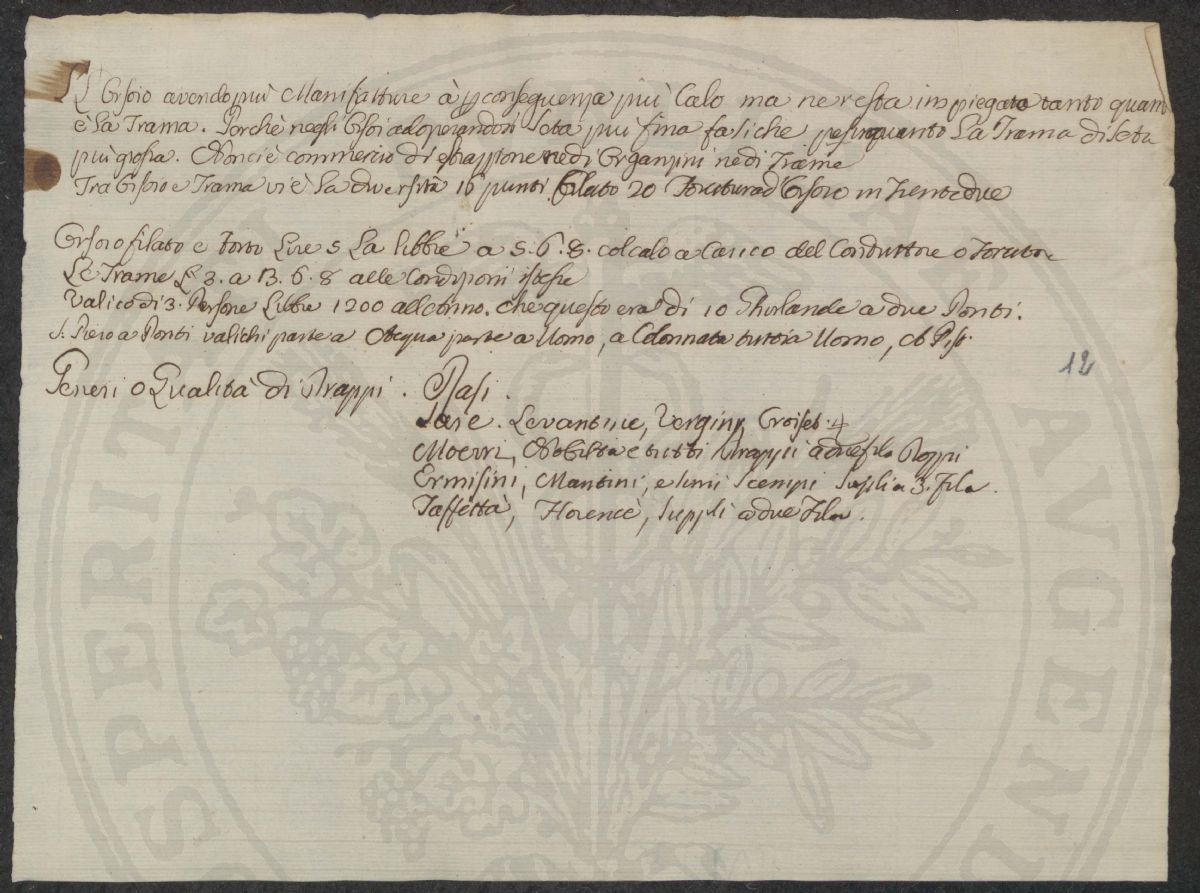 Il Orsoio avendo più Manifatture à p conseguenza più Calo ma ne resta inpiegata tanto quant
è la Trama. Perchè negli Orsoi adoperandosi seta più fina fa si che pesi quanto La Trama di seta
più grossa. Non ci è commercio di estrazzione ne di Organzini ne di Trame
Tra Orsoio e Trama vi è La diversità 16 punti filato 20 Torcitura d'Orsoio in trentadue
Orsoio filato e torto Lire 5 La libbra a 5. 6. 8. col calo a Carico del Conduttore o Torcitore
Le Trame £ 3. a 13. 6. 8 alle Condizioni istesse
Valico di 3. Persone Libbre 1200 all'Anno. che questo era di 10 Ghirlande a due Ponti.
S. Piero a Ponti valichi parte a Acqua parte a Uomo, a Colonnata tutti a Uomo,
12
Generi o Qualità di Drappi. Rasi.
Sare. Levantine, Vergini, Croiset.
Moerri, Nobiltà e tutti Drappi a due fila Doppi
Ermisini, Mantini, e simi Scempi Suplia 3. fila.
Taffettà, Florence, Suppli a due Fila.
SPERITATI AVGENDAE